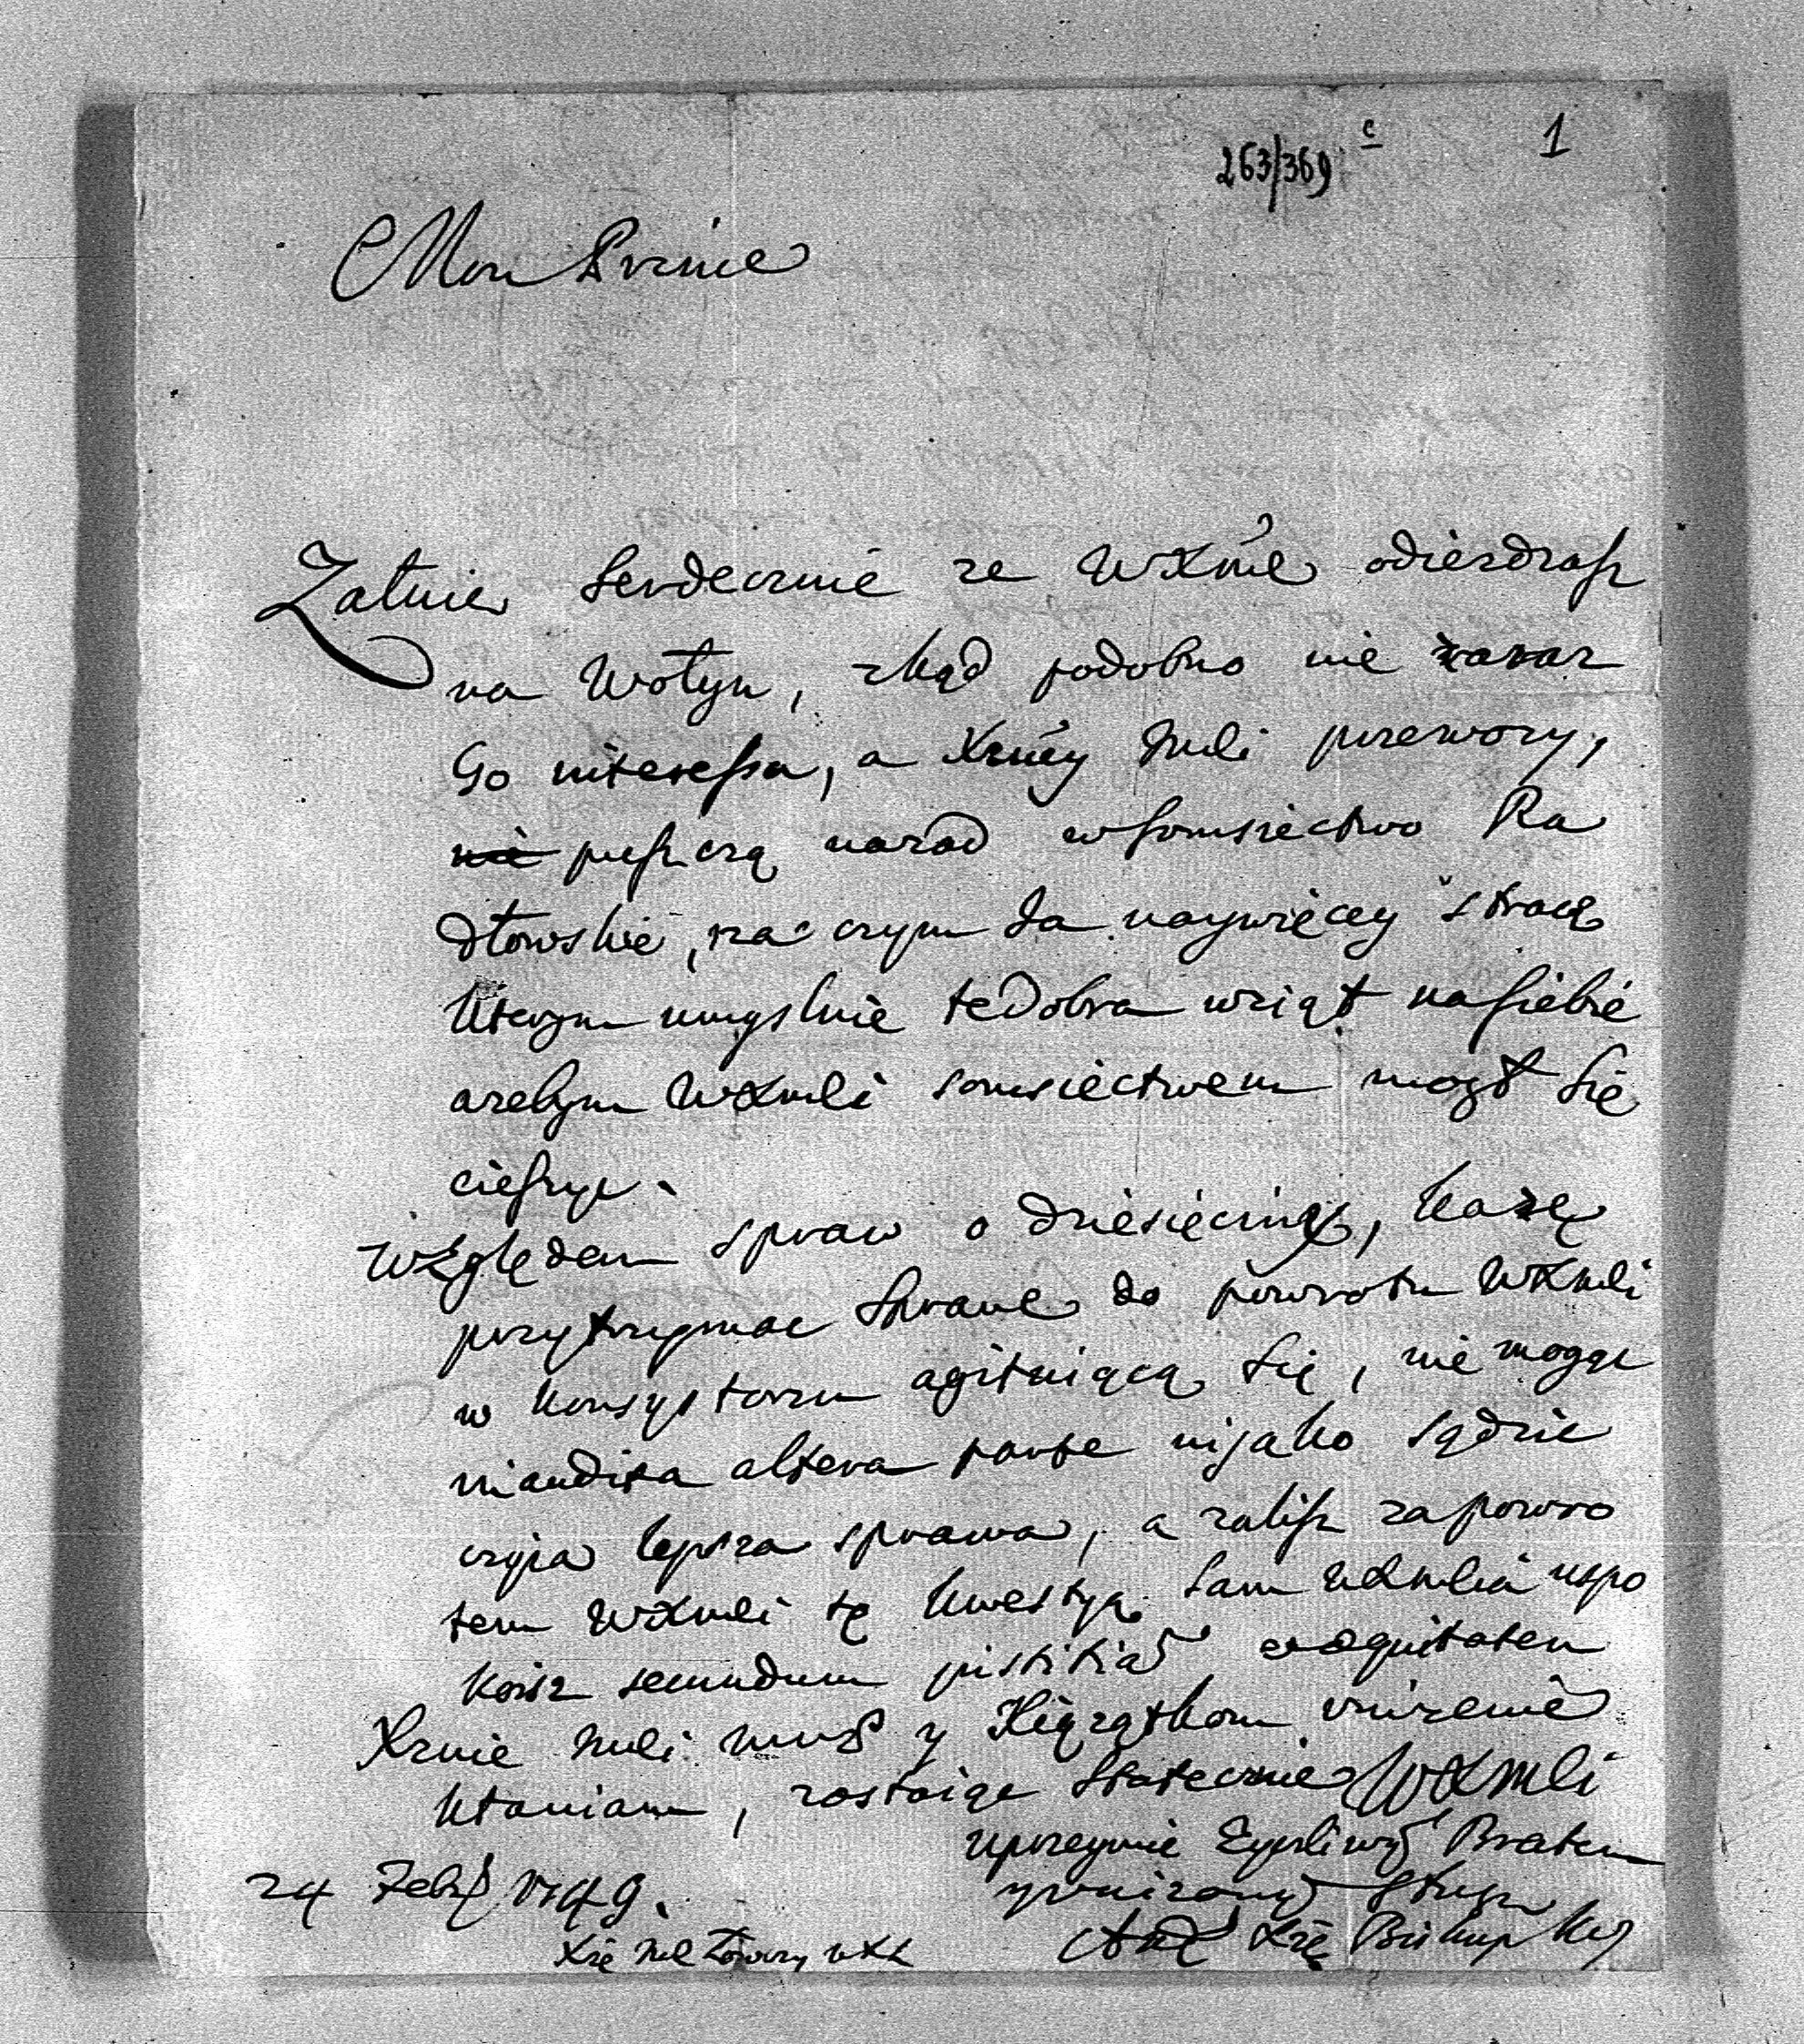 263/369 c
1
Mon Prince
Załuię serdecznie ze WXMć odiezdzasz
na Wołyn, zkąd podobno nie zaraz
Go interessa, a Xzney Jmci pierwozy,
nie puszczą nazad w somsiectwo Ra
dłowskie, na czym Ja naywięcey stracę
ktorym umyslnie te Dobra wziął na siebie
azebym WXMCi somsiectwem mogł się
cieszyc.
Względem spraw o dziesięcinę, kazę
przytrzymac sprawę do powrotu WXMCi
w konsystorzu agituiącą się, nie mogąc
inaudita altera parte nijako sądzic
czyia lepsza sprawa, a zalisz za powro
tem WXMCi tę kwestyą sam uspo
koisz secundum justitiā et aequitatem
Xznie Jmci mey y Xiązątkom unizenie
kłaniam, zostaiąc statecznie WXMCi
uprzeymie zyczliwy Bratem
y unizonym sługą
And Xże Biskup Kr
24 Febr 1749.
Xże Jmć Łowczy WXL